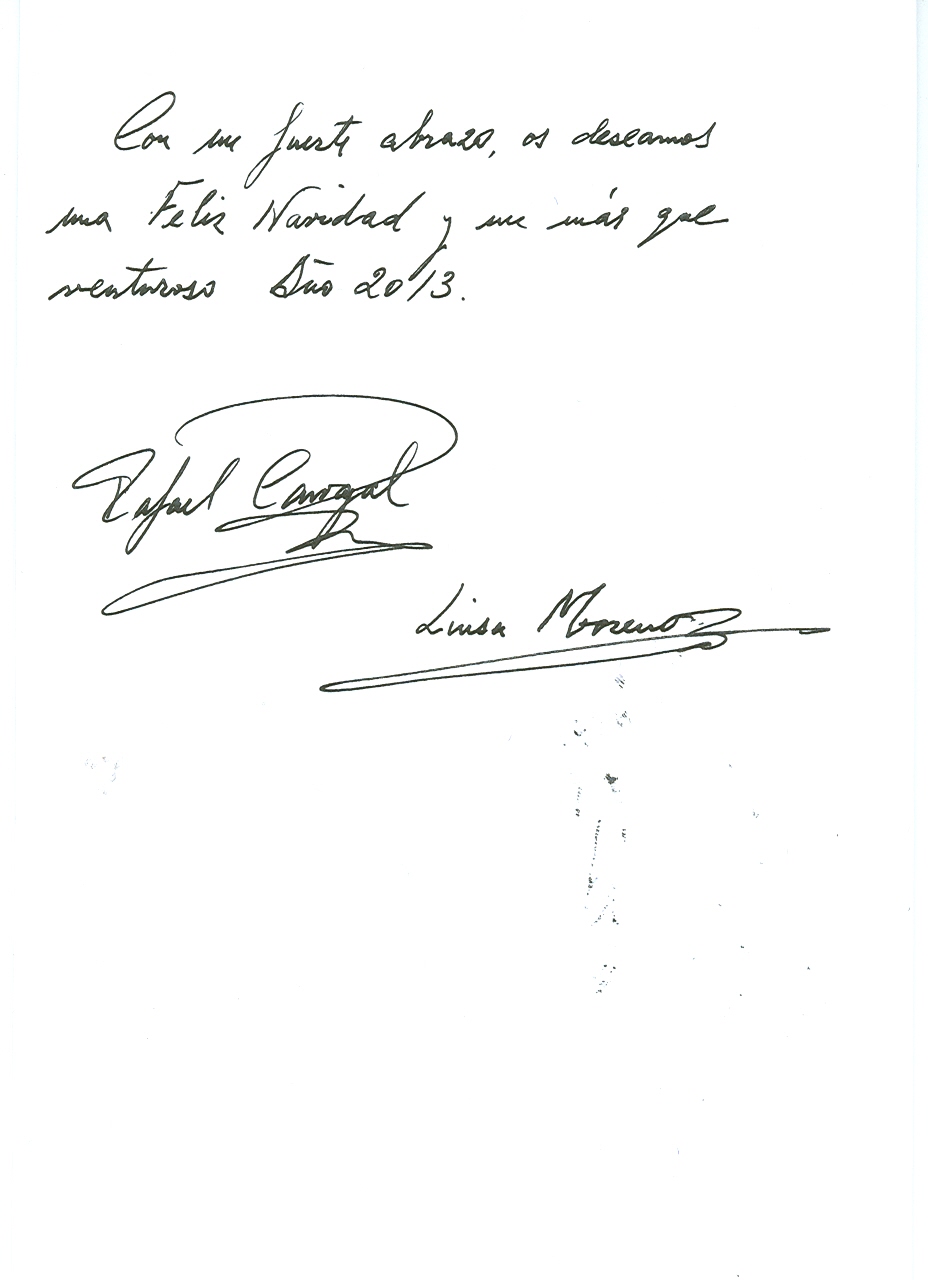 Con un fuerte abrazo, os deseamos
una Feliz Navidad y un más que
venturoso Año 2013.
Rafael Carvajal
Luisa Moreno